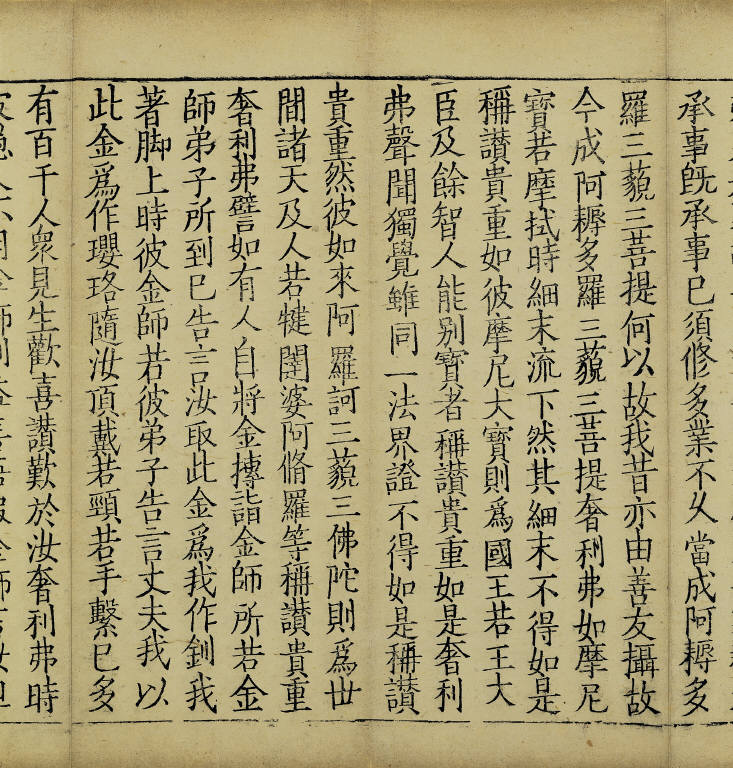 承事旣承事已須修多業不久當成阿耨多
羅三藐三菩提何以故我昔亦由善友攝故
今成阿耨多羅三藐三菩提奢利弗如摩尼
寶若摩拭時細末流下然其細末不得如是
稱讃貴重如彼摩尼大寶則爲國王若王大
臣及餘智人能别寶者稱讃貴重如是奢利
弗聲聞獨覺雖同一法界證不得如是稱讃
貴重然彼如來阿羅訶三藐三佛陀則爲世
間諸天及人若揵闥婆阿脩羅等稱讃貴重
奢利弗譬如有人自將金摶詣金師所若金
師弟子所到已告言汝取此金爲我作釧我
著脚上時彼金師若彼弟子告言丈夫我以
此金爲作瓔珞隨汝頂戴若頸若手繫已多
有百千人衆見生歡喜讃歎於汝奢利弗時